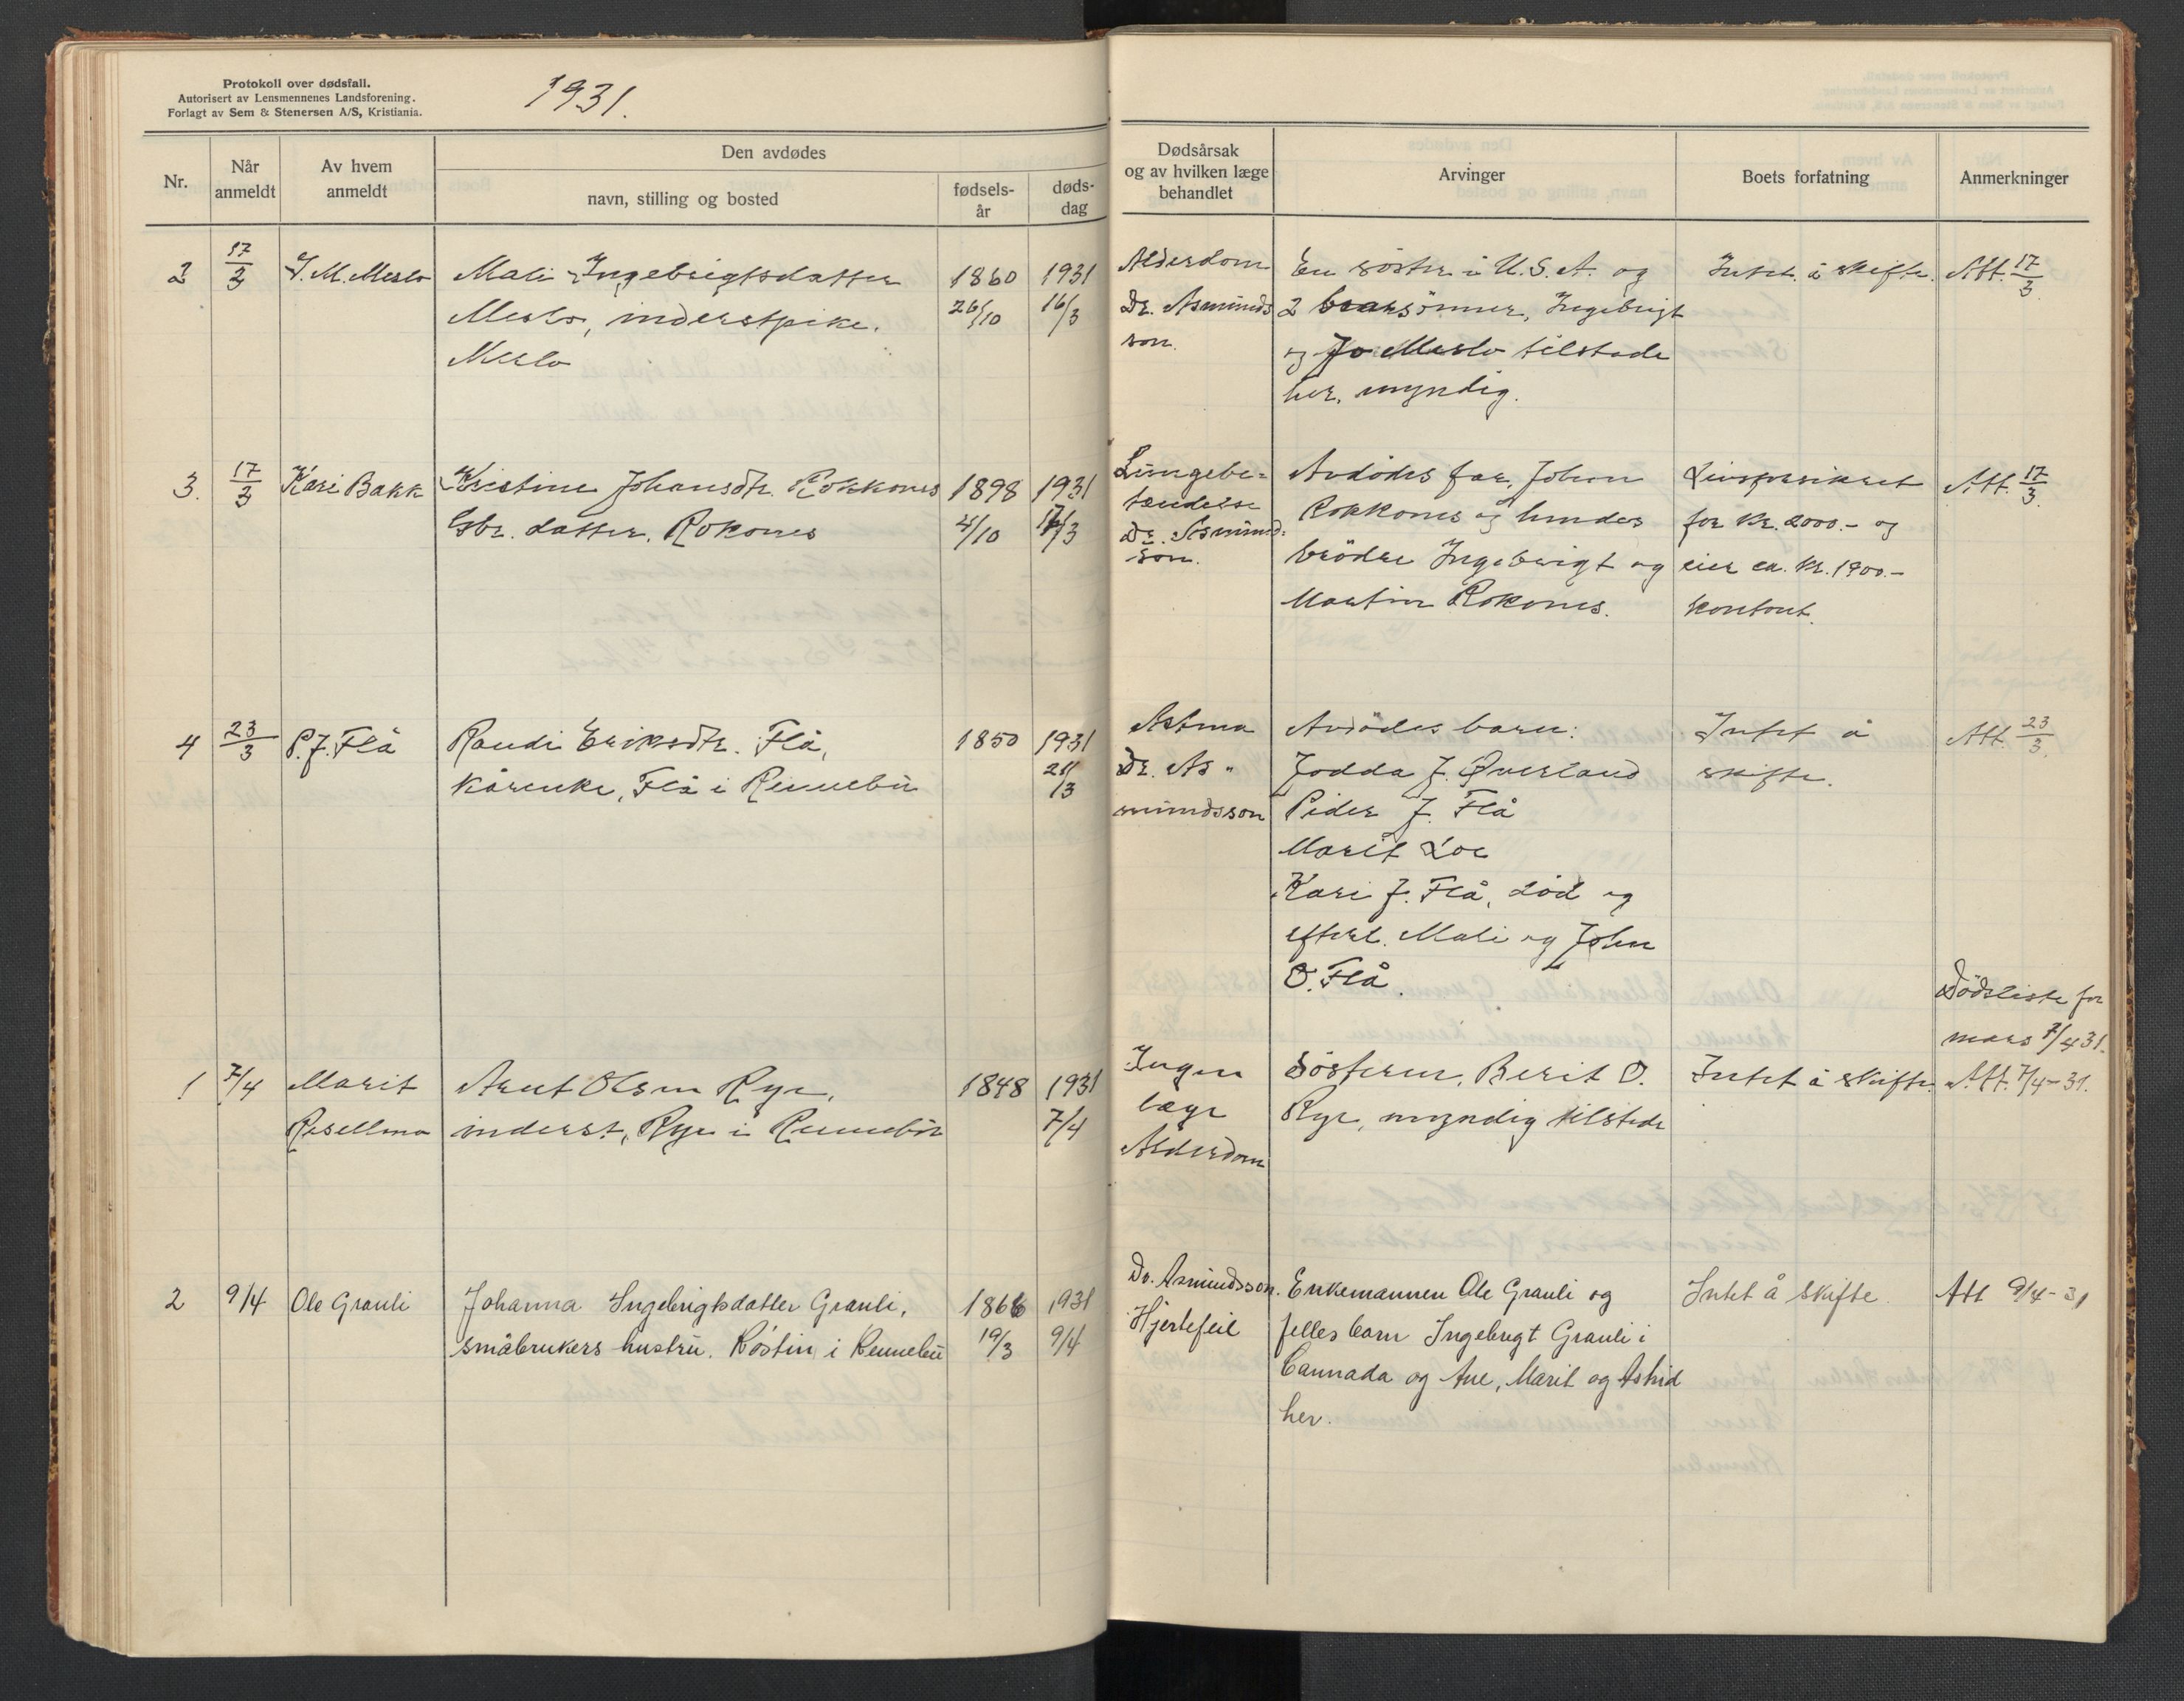 Protokoll over dødsfall.
Autorisert av Lensmennenes Landsforening.
Forlagt av Sem & Stenersen A/S, Kristiania.
1931.
Nr.
Når anmeldt
Av hvem anmeldt
Den avdødes
navn, stilling og bosted
fødsels-år
døds-dag
Dødsårsak
og av hvilken læge
behandlet
Arvinger
Boets forfatning
Anmerkninger
2 17/3 J. M. Meslo Mali Ingebrigtsdatter 1860 1931
Meslo, inderstpike. 26/10 16/3
Meslo
Alderdom
Dr. Asmunds
son.
En søster i U.S.A. og
2 brorsønner, Ingebrigt
og Jo Meslo tilstede
her, myndig.
Intet å skifte.
Att. 17/3
3. 17/3 Kari Bakk Kristine Johansdtr. Rokkones 1898 1931
Gbr. datter. Rokones 4/10 /3
Lungebe-
tændelse
Dr. Asmund-
son.
Avdødes far, John
Rokkones og hendes
brödre Ingebrigt og
Martin Rokones.
Livsforsikret
for kr. 2000.- og
eier ca. kr. 1900.-
kontant.
Att. 17/3
4 23/3 P. J. Flå Randi Eriksdtr. Flå, 1850 1931
kårenke, Flå i Rennebu 21/3
Astma
Dr. As-
mundsson
Avdödes barn:
Jodda J. Øverland
Peder J. Flå
Marit Loe
Kari J. Flå, död og
efterl. Mali og John
O. Flå.
Intet å
skifte.
Att. 23/3.
Dödsliste for
mars 7/4 31.
1 7/4 Marit Arnt Olsen Rye, 1848 1931
Resellmo inderst, Rye i Rennebu 7/4
Ingen
læge
Alderdom
Søsteren, Berit O.
Rye, myndig tilstede
Intet å skifte.
Att. 7/4-31.
2 9/4 Ole Granli Johanna Ingebrigtsdatter Granli, 1866 1931
småbrukers hustru. Röstin i Rennebu 19/3 9/4
Dr. Asmundsson.
Hjertefeil
Enkemannen Ole Granli og
felles barn Ingebrigt Granli i
Cannada og Ane, Marit og Astrid
her.
Intet å skifte.
Att 9/4-31